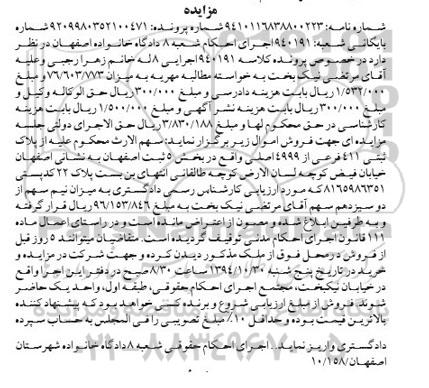 مزایده
شماره نامه: ۹۴۱۰۱۱۶۸۳۸۸۰۰۲۲۳ شماره پرونده: ۹۲۰۹۹۸۰۳۵۲۱۰۰۴۷۱ شماره
بایگانی شعبه: ۹۴۰۱۹۱ اجرای احکام شعبه ۸ دادگاه خانواده اصفهان در نظر
دارد در خصوص پرونده کلاسه ۹۴۰۱۹۱ اجرایی ۸ له خانم زهرا رجبی وعلیه
آقای مرتضی نیک بخت به خواسته مطالبه مهریه به میزان ۷۶/۶۰۳/۷۷۳ و مبلغ
۱/۵۳۲/۰۰۰ ریال بابت هزینه دادرسی و مبلغ ۳۰۰/۰۰۰ ریال حق الوکاله وکیل و
مبلغ ۳۰۰/۰۰۰ ریال بابت هزینه نشر آگهی و مبلغ ۱/۵۰۰/۰۰۰ ریال بابت هزینه
کارشناسی در حق محکوم لها و مبلغ ۳/۸۳۰/۱۸۸ ریال حق الاجرای دولتی جلسه
مزایده ای جهت فروش اموال زیر برگزار نماید: سهم الارث محکوم علیه از پلاک
ثبتی ۴۱۱ فرعی از ۴۹۹۹ اصلی واقع در بخش ۵ ثبت اصفهان به نشانی اصفهان
خیابان فیض کوچه لسان الارض کوچه طالقانی انتهای بن بست پلاک ۲۲ کدپستی
۸۱۶۵۹۸۶۳۵۱ که مورد ارزیابی کارشناس رسمی دادگستری به میزان نیم سهم از
دو سیزدهم سهم آقای مرتضی نیک بخت به مبلغ ۹۶/۱۵۳/۸۴۶ ریال قرار گرفته
و به طرفین ابلاغ شده و مصون از اعتراض مانده است و در راستای اعمال ماده
۱۱۱ قانون اجرای احکام مدنی توقیف گردیده است. متقاضیان میتوانند ۵ روز قبل
از فروش در محل فوق از ملک مذکور دیدن کرده و جهت شرکت در مزایده و
خرید در تاریخ پنج شنبه ۱۳۹۴/۱۰/۳۰ ساعت ۸/۳۰ صبح در دفتر این اجرا واقع
در خیابان نیکبخت، مجتمع اجرای احکام حقوقی، طبقه اول، واحد یک حاضر
شوند. فروش از مبلغ ارزیابی شروع و برنده کسی خواهد بود که پیشنهاد کننده
بالاترین قیمت بوده و حداقل ۱۰٪ مبلغ تصویبی را فی المجلس به حساب سپرده
دادگستری واریز نماید.. اجرای احکام حقوقی شعبه ۸ دادگاه خانواده شهرستان
اصفهان ۱۰/۱۵۸/